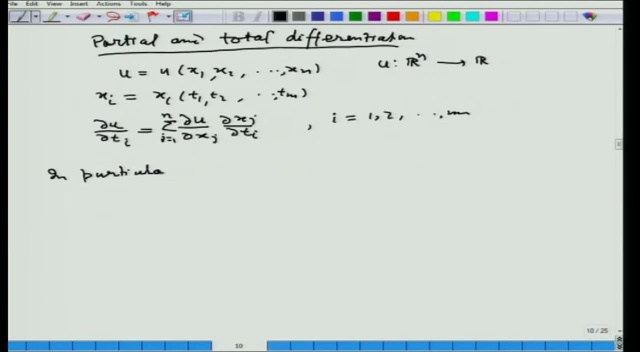 File Edit View Insert Actions Tools Help
Partial and total differentiation
u = u(x₁, x₂, ..., xₙ) u: ℝⁿ → ℝ
xᵢ = xᵢ(t₁, t₂, ..., tₘ)
∂u/∂tᵢ = ∑ⁿⱼ₌₁ ∂u/∂xⱼ ∂xⱼ/∂tᵢ , i = 1, 2, ..., m
In particula
10 / 25
10